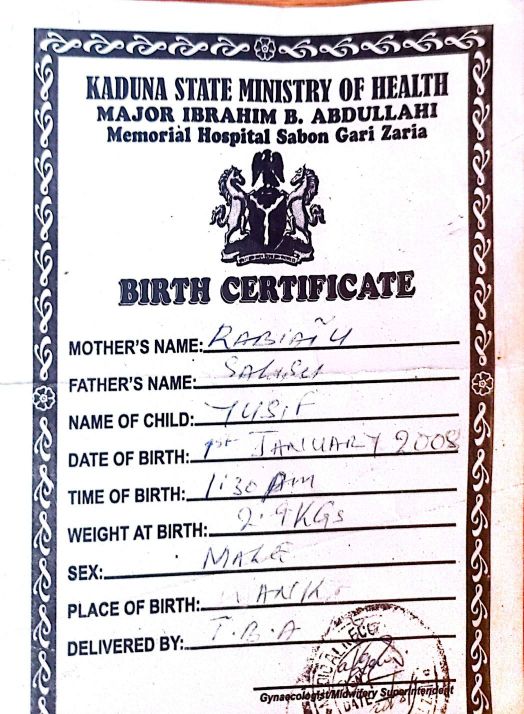 KADUNA STATE MINISTRY OF HEALTH
MAJOR IBRAHIM B. ABDULLAHI
Memorial Hospital Sabon Gari Zaria
BIRTH CERTIFICATE
MOTHER'S NAME: RABIATU
FATHER'S NAME: SALISU
NAME OF CHILD: YUSIF
DATE OF BIRTH: 1st JANUARY 2008
TIME OF BIRTH: 1:30 AM
WEIGHT AT BIRTH: 2.9KGs
SEX: MALE
PLACE OF BIRTH:
DELIVERED BY: T.B.A
Gynaecologist/Midwifery Superintendent
DATE